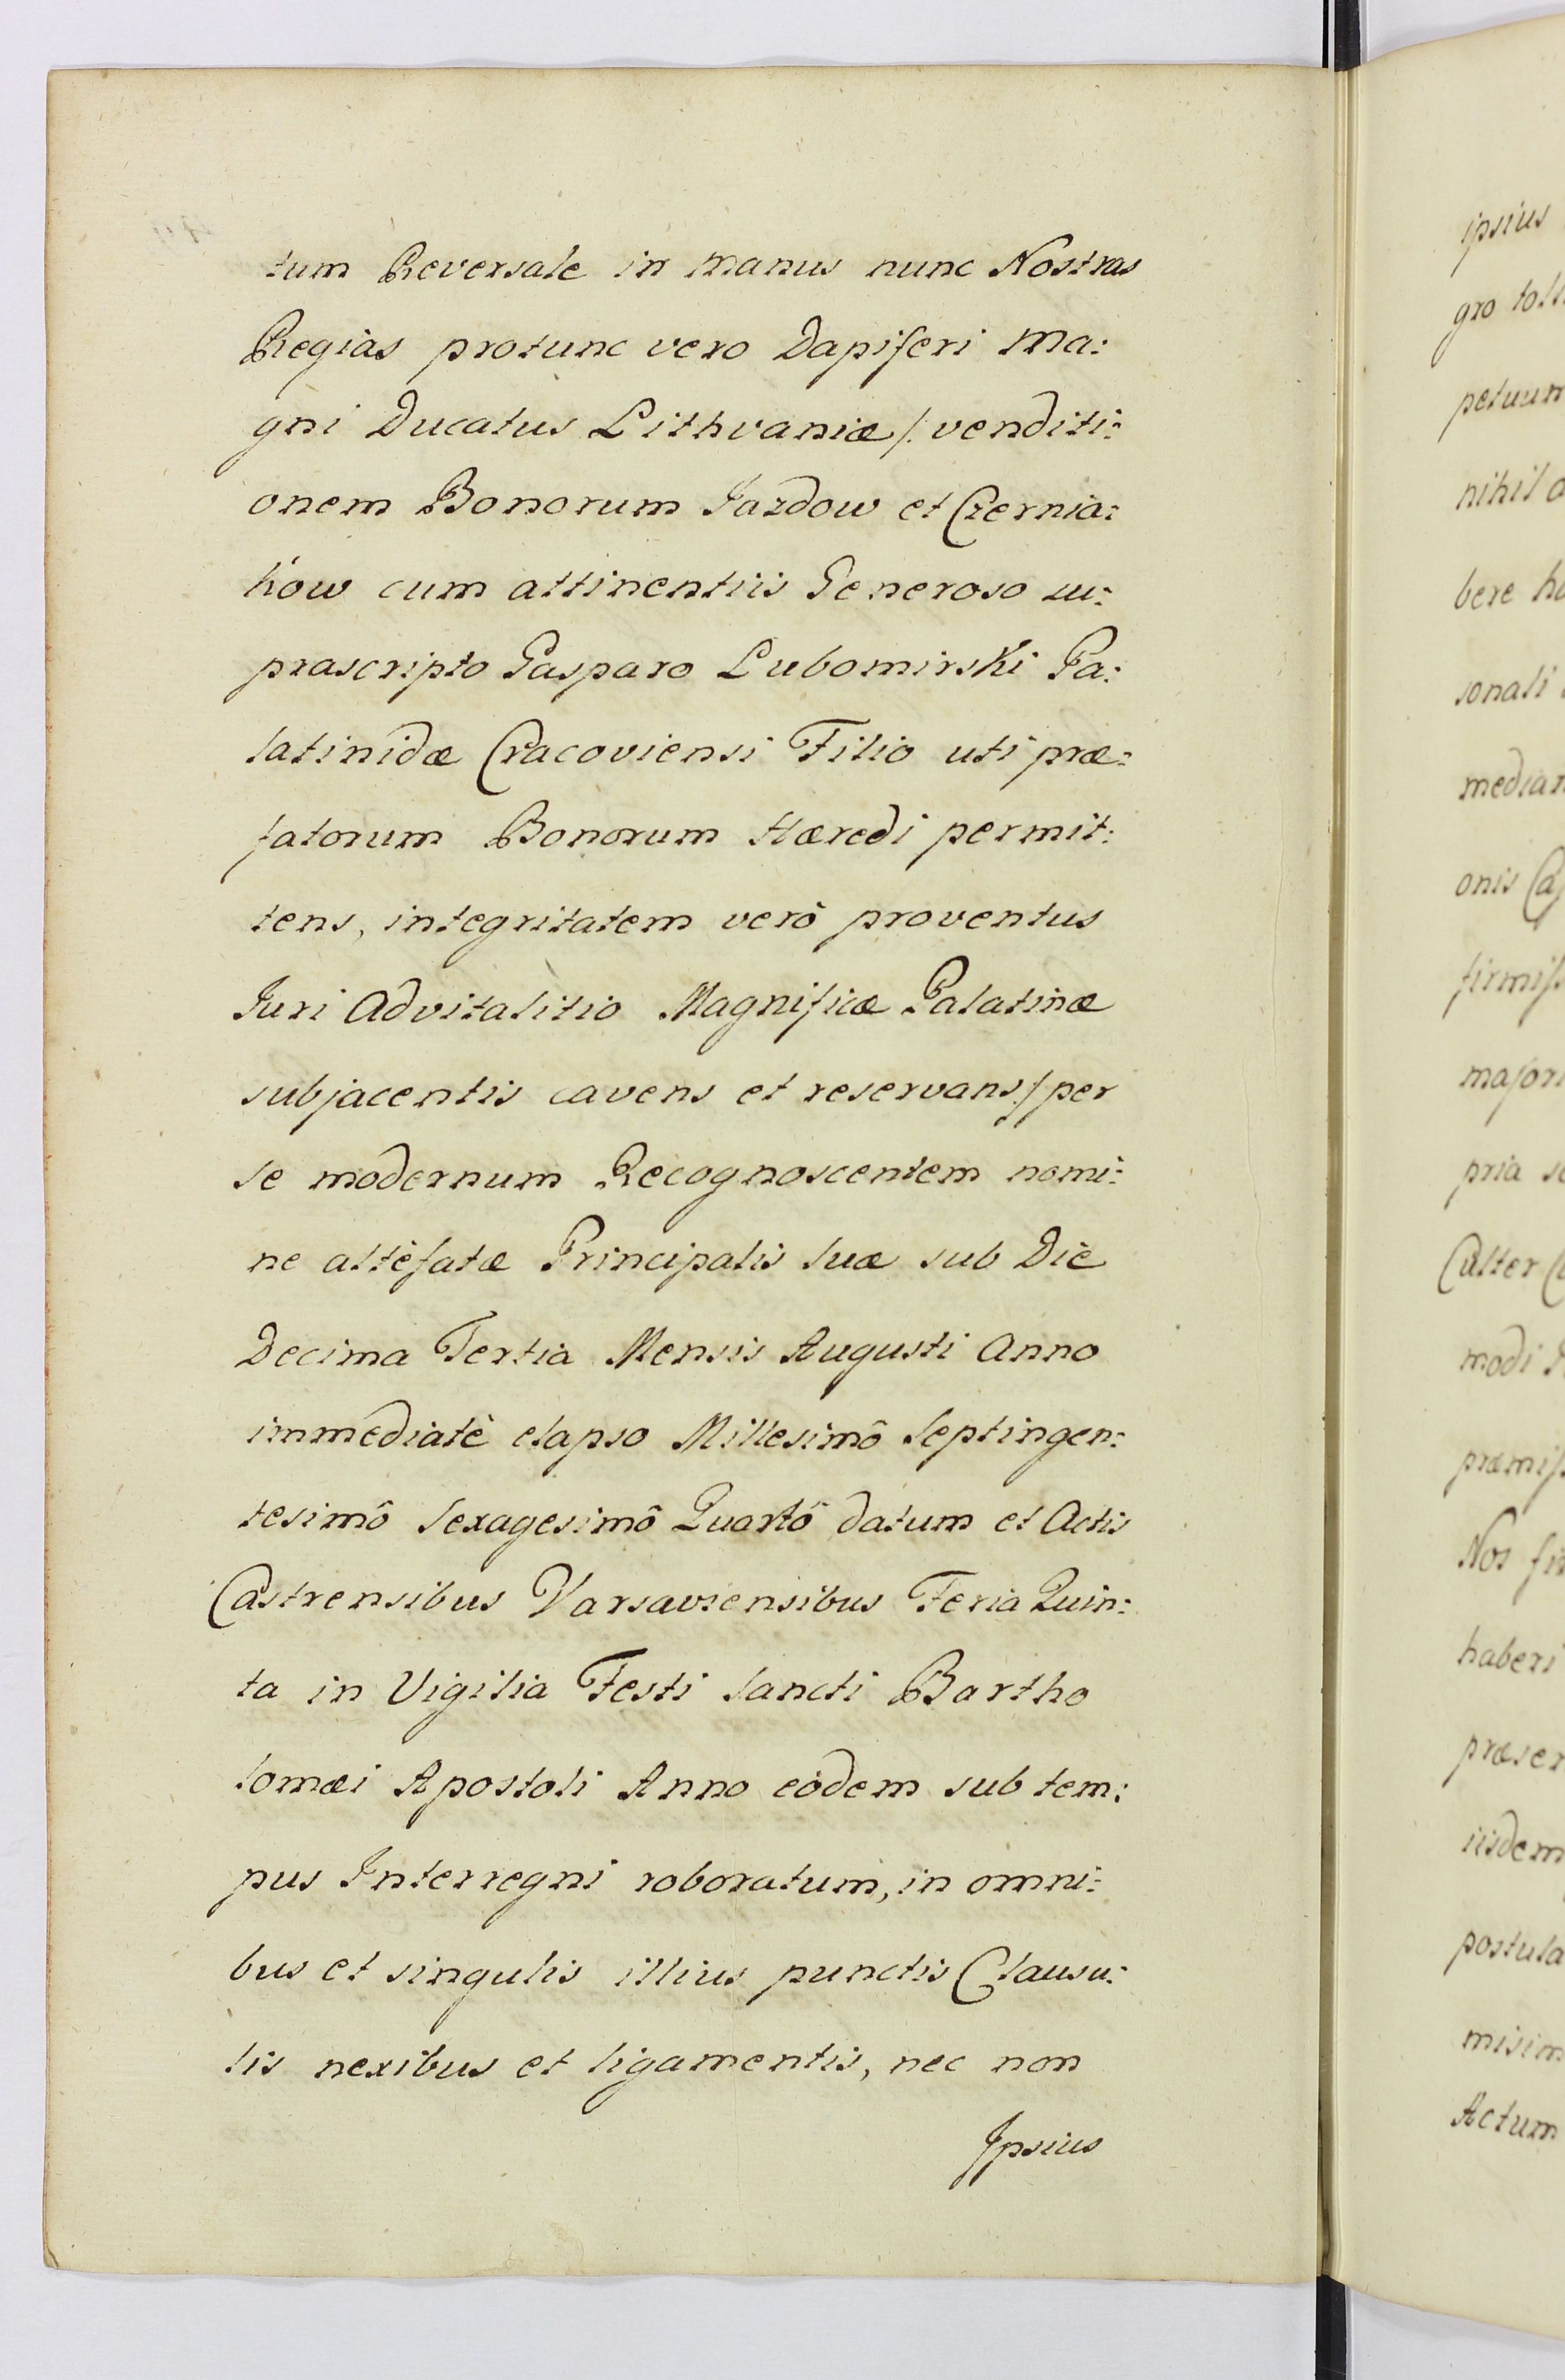 tum Reversale in manus nunc Nostras
Regias protunc vero Dapiferi Ma:
gni Ducatus Lithvaniæ /: venditi:
onem Bonorum Jazdow et Czernia:
kow cum attinentiis Generoso su:
prascripto Gasparo Lubomirski Pa:
latinidæ Cracoviensi Filio uti præ:
fatorum Bonorum Hæredi permit:
tens, integritatem verò proventus
Juri Advitalitio Magnificæ Palatinæ
subjacentis cavens et reservans :/ per
se modernum Recognoscentem nomi:
ne altèfatæ Principalis suæ sub Die
Decima Tertia Mensis Augusti Anno
immediatè elapso Millesimô Septingen:
tesimô Sexagesimô Quartô datum et Actis
Castrensibus Varsaviensibus Feria Quin:
ta in Vigilia Festi Sancti Bartho
lomæi Apostoli Anno eòdem sub tem:
pus Interregni roboratum, in omni:
bus et singulis illius punctis Clausu:
lis nexibus et ligamentis, nec non
Ipsius
ipsius
gro
petuum
nihil
bere
sonali
median
onis
firmiss
majori
pria
Culter
modi
præmiss
Nos
haberi
præser
iisdem
postula
misim
Actum